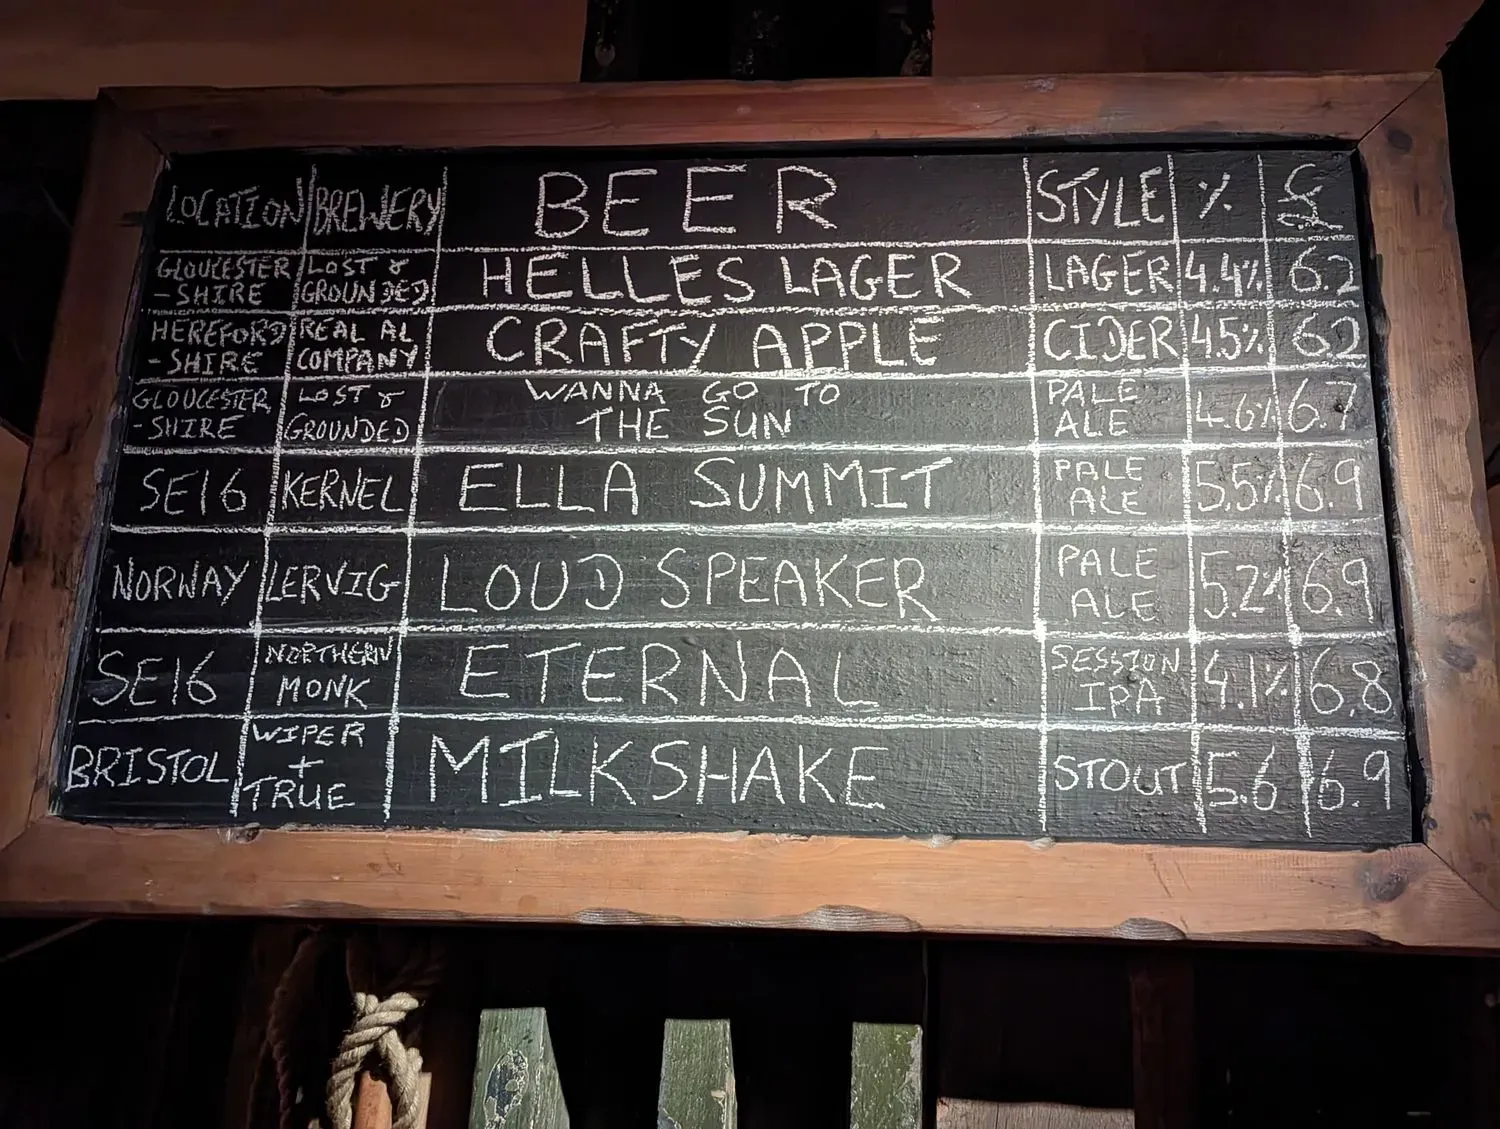 LOCATION BREWERY BEER STYLE % £
GLOUCESTER LOST & HELLES LAGER LAGER 4.4% 6.2
-SHIRE GROUNDED
HEREFORD REAL AL CRAFTY APPLE CIDER 4.5% 6.2
-SHIRE COMPANY
GLOUCESTER LOST & WANNA GO TO PALE 4.6% 6.7
-SHIRE GROUNDED THE SUN ALE
SE16 KERNEL ELLA SUMMIT PALE 5.5% 6.9
ALE
NORWAY LERVIG LOUD SPEAKER PALE 5.2% 6.9
ALE
SE16 NORTHERN ETERNAL SESSION 4.1% 6.8
MONK IPA
BRISTOL WIPER MILKSHAKE STOUT 5.6 6.9
+
TRUE